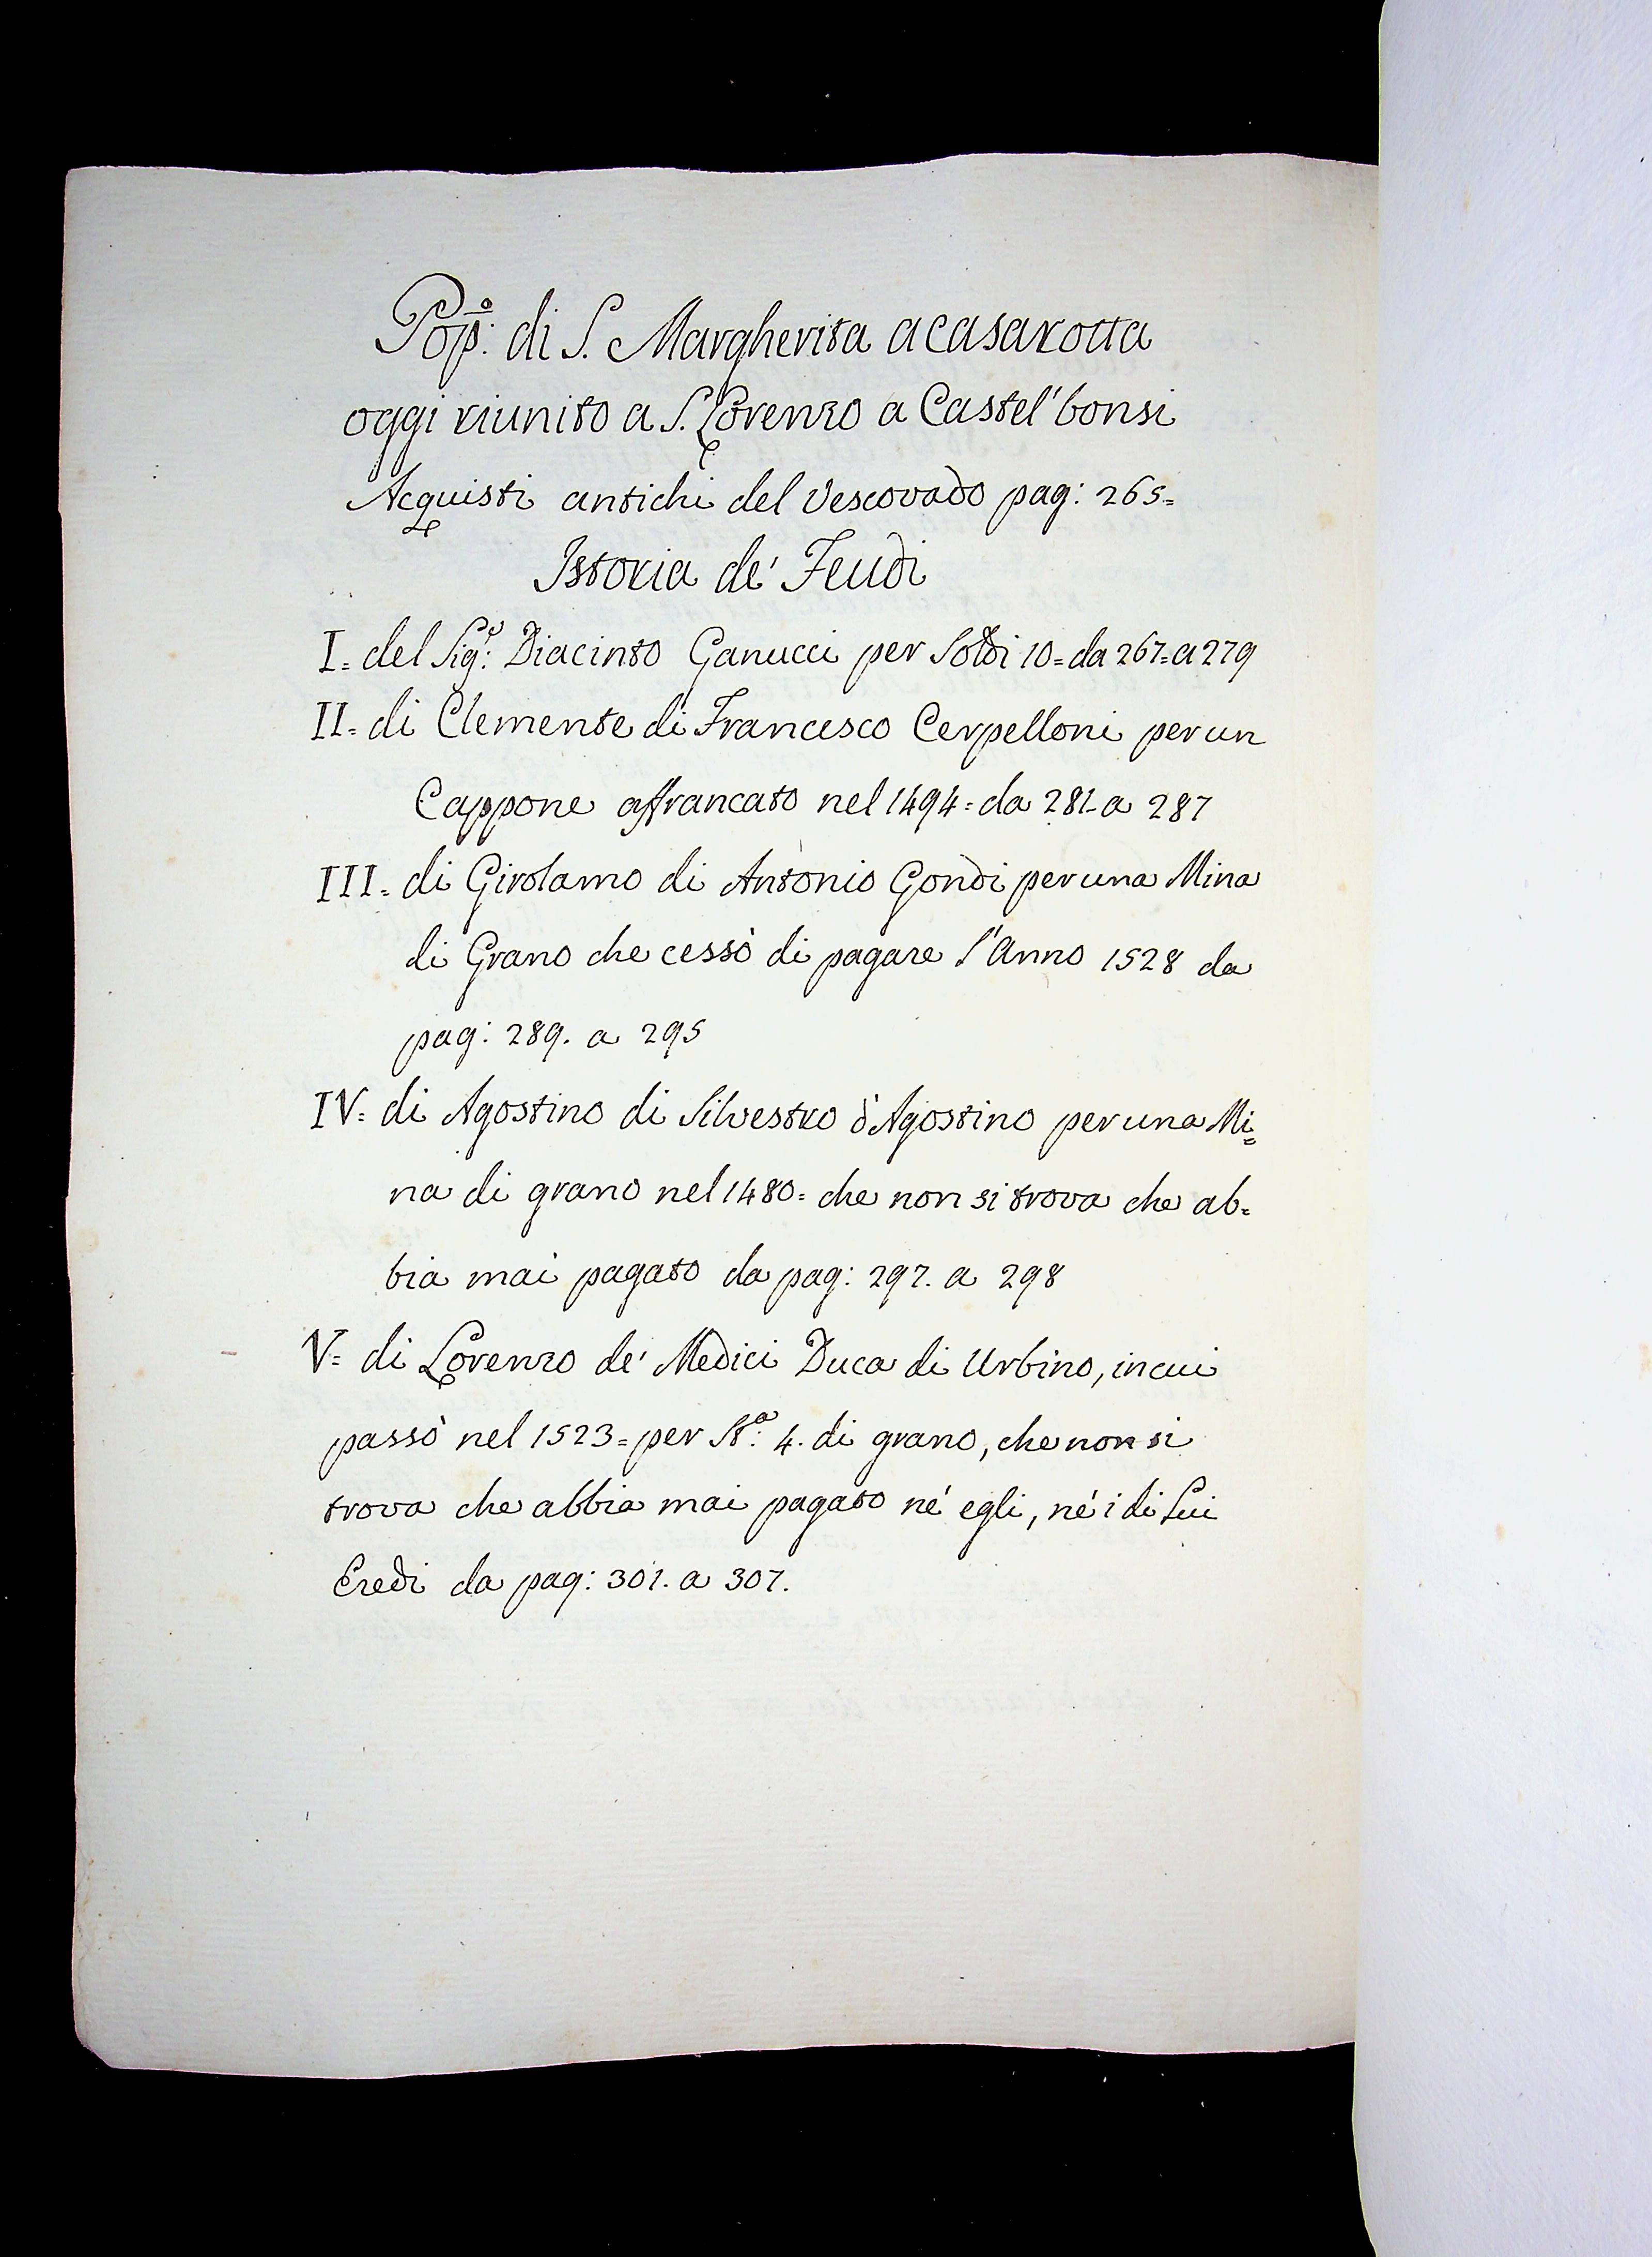 Pop.º di S. Margherita a casarotta
oggi riunito a S. Lorenzo a Castel' bonsi
Acquisti antichi del Vescovado pag: 265=
Istoria de' Feudi
I= del Sig:e Diacinto Ganucci per Soldi 10= da 267= a 279
II= di Clemente di Francesco Cerpelloni per un
Cappone affrancato nel 1494= da 281 a 287
III= di Girolamo di Antonio Gondi per una Mina
di Grano che cessò di pagare l'Anno 1528 da
pag: 289. a 295
IV= di Agostino di Silvestro d'Agostino per una Mi=
na di grano nel 1480= che non si trova che ab=
bia mai pagato da pag: 297. a 298
V= di Lorenzo de' Medici Duca di Urbino, in cui
passò nel 1523= per St:a 4. di grano, che non si
trova che abbia mai pagato né egli, né i di Lui
Eredi da pag: 301. a 307.